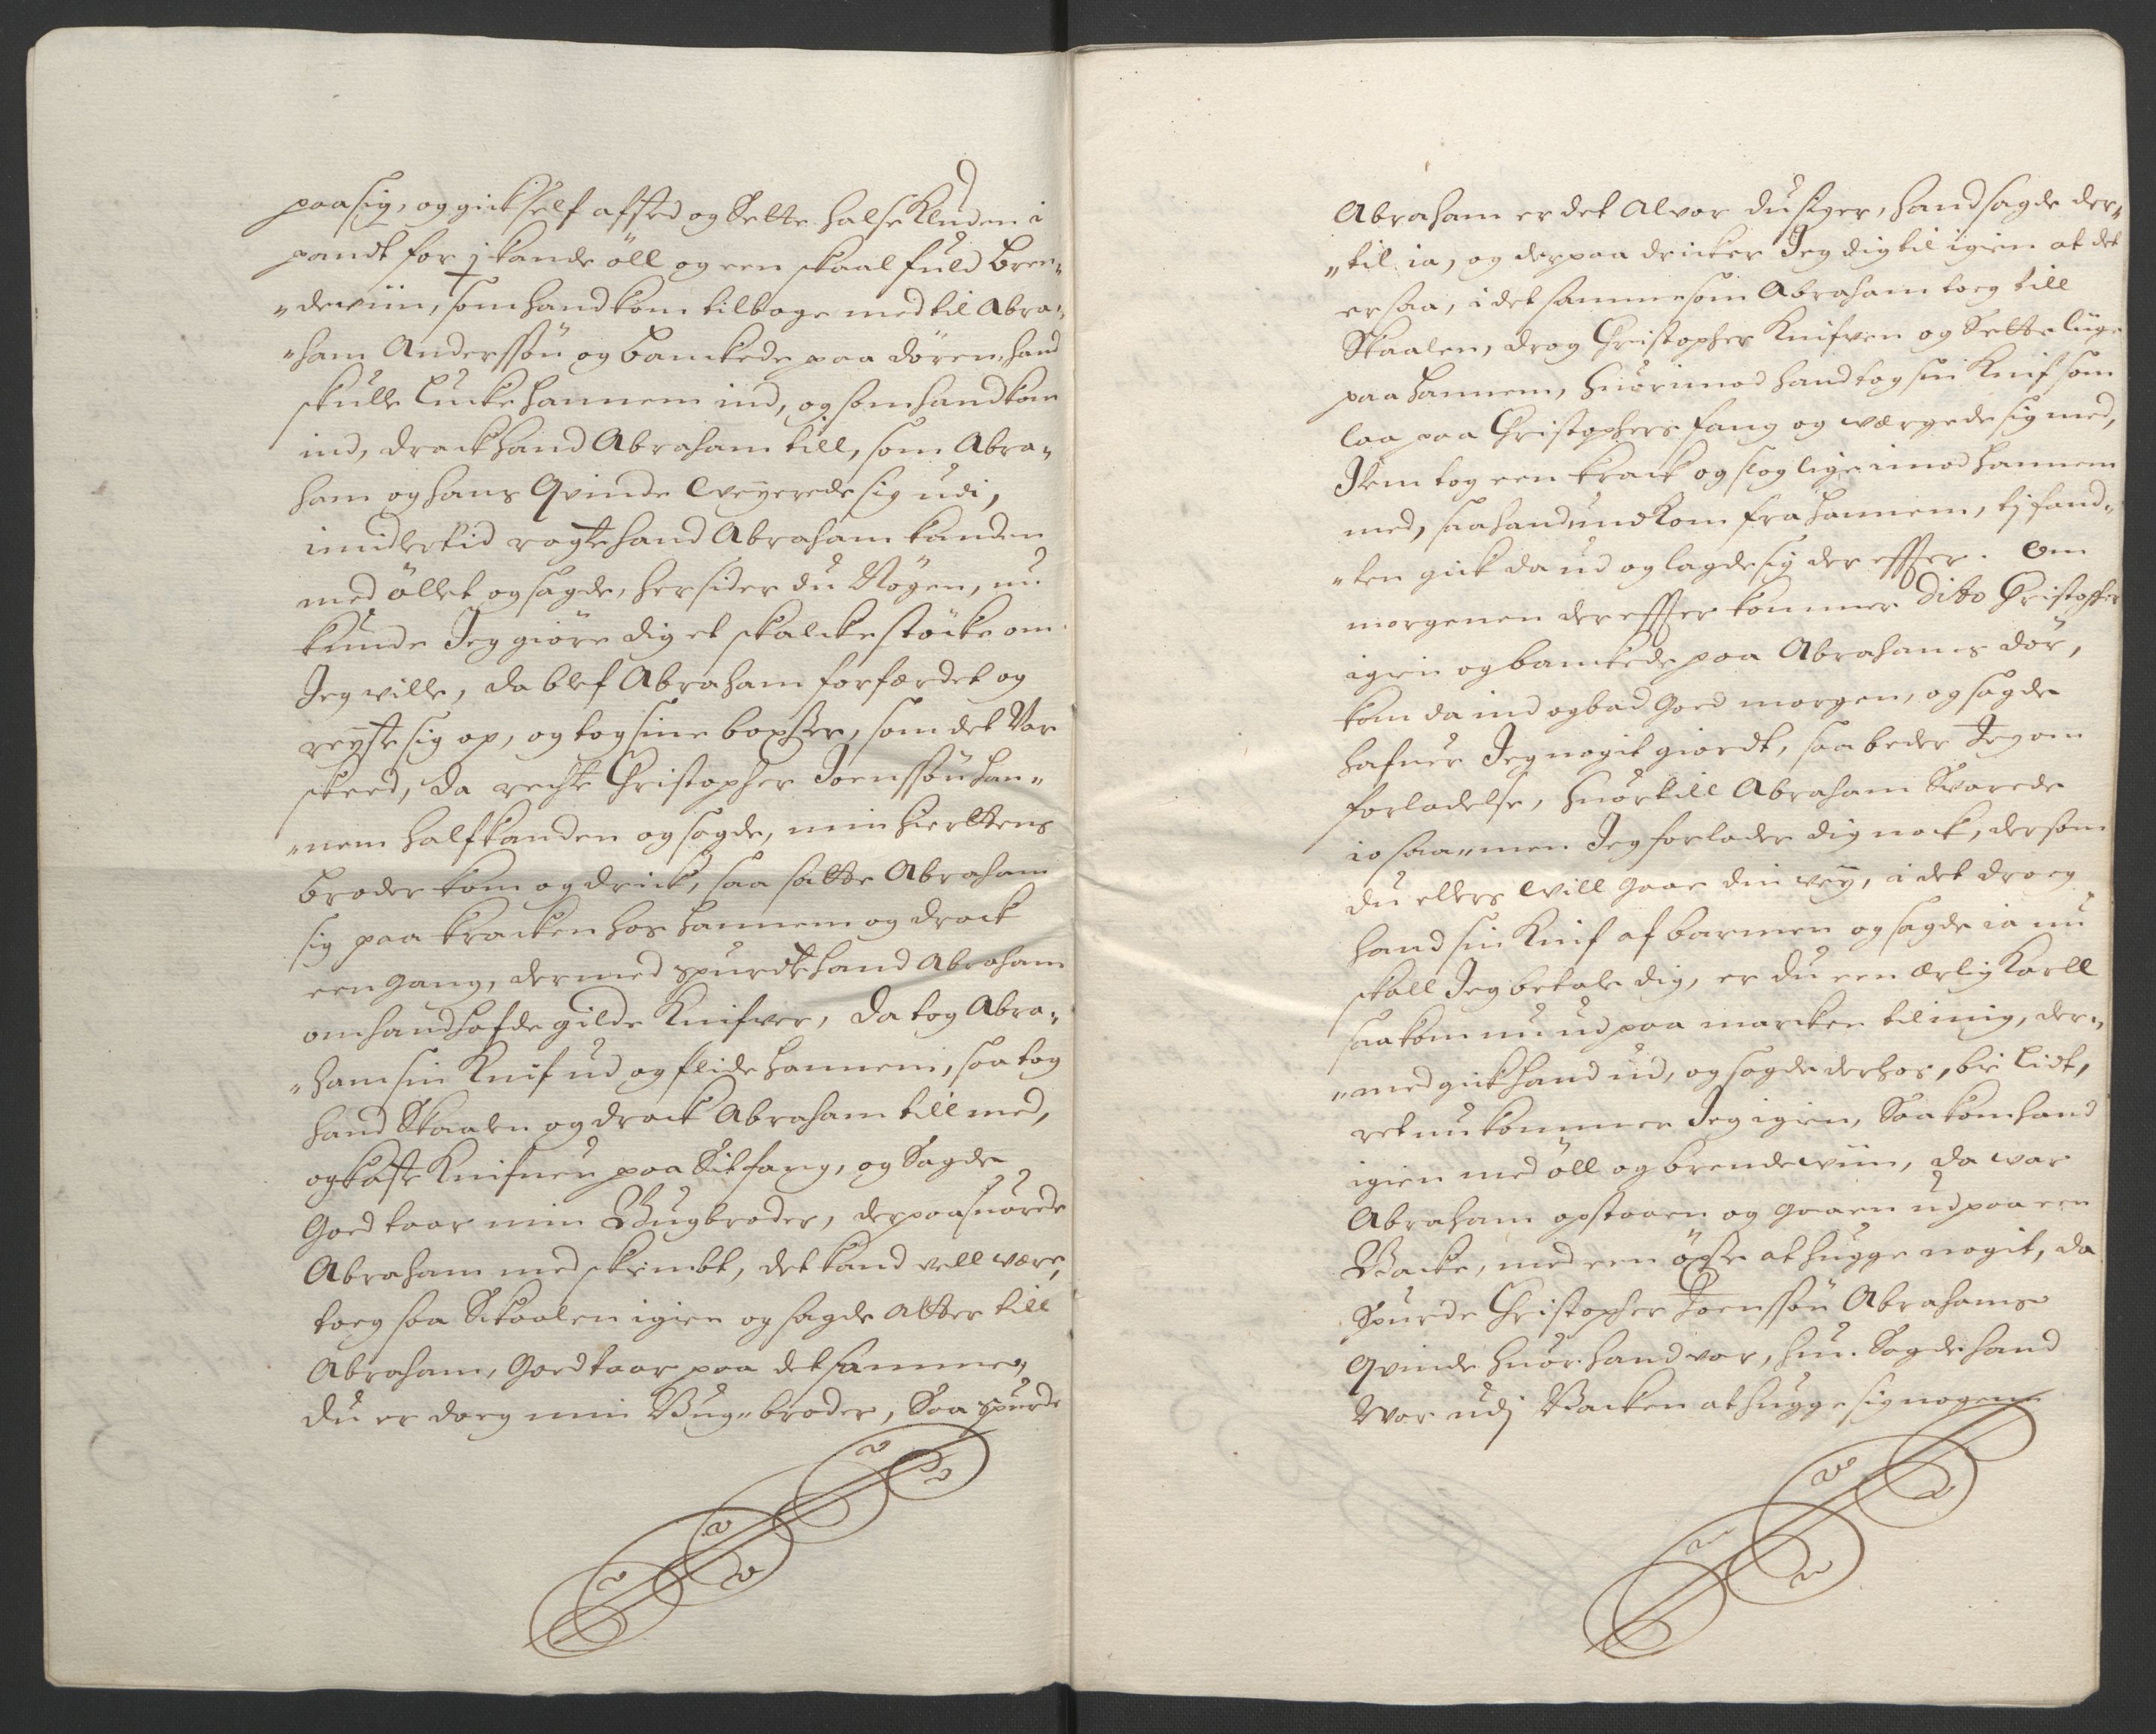 paa sig, og gick self afsted og Sette halsKluden i
pandt for j kande öll og een skaal fuld bren„
„dewiin, som hand kom tilbage med til Abra„
„ham Anderssön og banckede paa dören, hand
skulle lucke hannem ind, og som hand kom
ind, drack hand Abraham till, som Abra„
ham og hans Qvinde weyerede sig udi,
imidlertid ragte hand Abraham kanden
med öllet og sagde, her sider du Nögen, nu
kunde Jeg giöre dig et skalcke støcke om
Jeg wille, da blef Abraham forfærdet og
reyste sig op, og tog sine boxser, som det Var
skeed, da reckte Christopher Joenssön han„
„nem halfkanden og sagde, min hierttens
broder kom og drick, saa satte Abraham
sig paa kracken hos hannem og drack
een gang, dermed spurdte hand Abraham
om hand hafde gilde Knifver, da tog Abra„
„ham sin Knif ud og flide hannem, saa tog
hand Skaalen og drack Abraham till med,
og kaste Knifuen paa Sit fang, og Sagde
Goed taar min Bugbroder, derpaa suarde
Abraham med skimbt, det kand vell være,
toeg saa Skaalen igien og sagde Atter till
Abraham, Goed taar paa det samme,
du er doeg min Bug„broder, Saa spurde
Abraham er det Alvor du siger, hand sagde der„
„til ia, og derpaa dricker Jeg dig til igien at det
er saa, i det samme som Abraham toeg till
Skaalen, drog Christopher Knifven og Sette lüge
paa hannem, huorimod hand tog sin Knif som
laa paa Christophers fang og wærgede sig med,
Item tog een krack og slog lige imod hannem
med, saa hand undkom fra hannem, tj fand„
„ten gick da ud og lagde sig der effter. Om
morgenen der effter kommer Ditto Christopher
igien og banckede paa Abrahams dör,
kom da ind og bad Goed morgen, og sagde
hafuer Jeg nogit giordt, saa beder Jeg om
forladelse, huortill Abraham Svarede
io saa„men Jeg forlader dig nock, dersom
du ellers will Gaae din wey, i det droeg
hand sin Knif af barmen og sagde ia nu
skall Jeg betale dig, er du een ærlig Karll
saa kom nu ud paa marcken til mig, der„
„med gick hand ud, og sagde derhos, bie lidt,
ret nu kommer Jeg igien, Saa kom hand
igien med öll og brendewiin, da war
Abraham opstaaen og Gaaen ud paa een
Backe, med een öxse at hugge nogit, da
Spurde Christopher Joenssön Abrahams
Qvinde huor hand var, hun Sagde hand
War udj Backen at hugge sig nogen